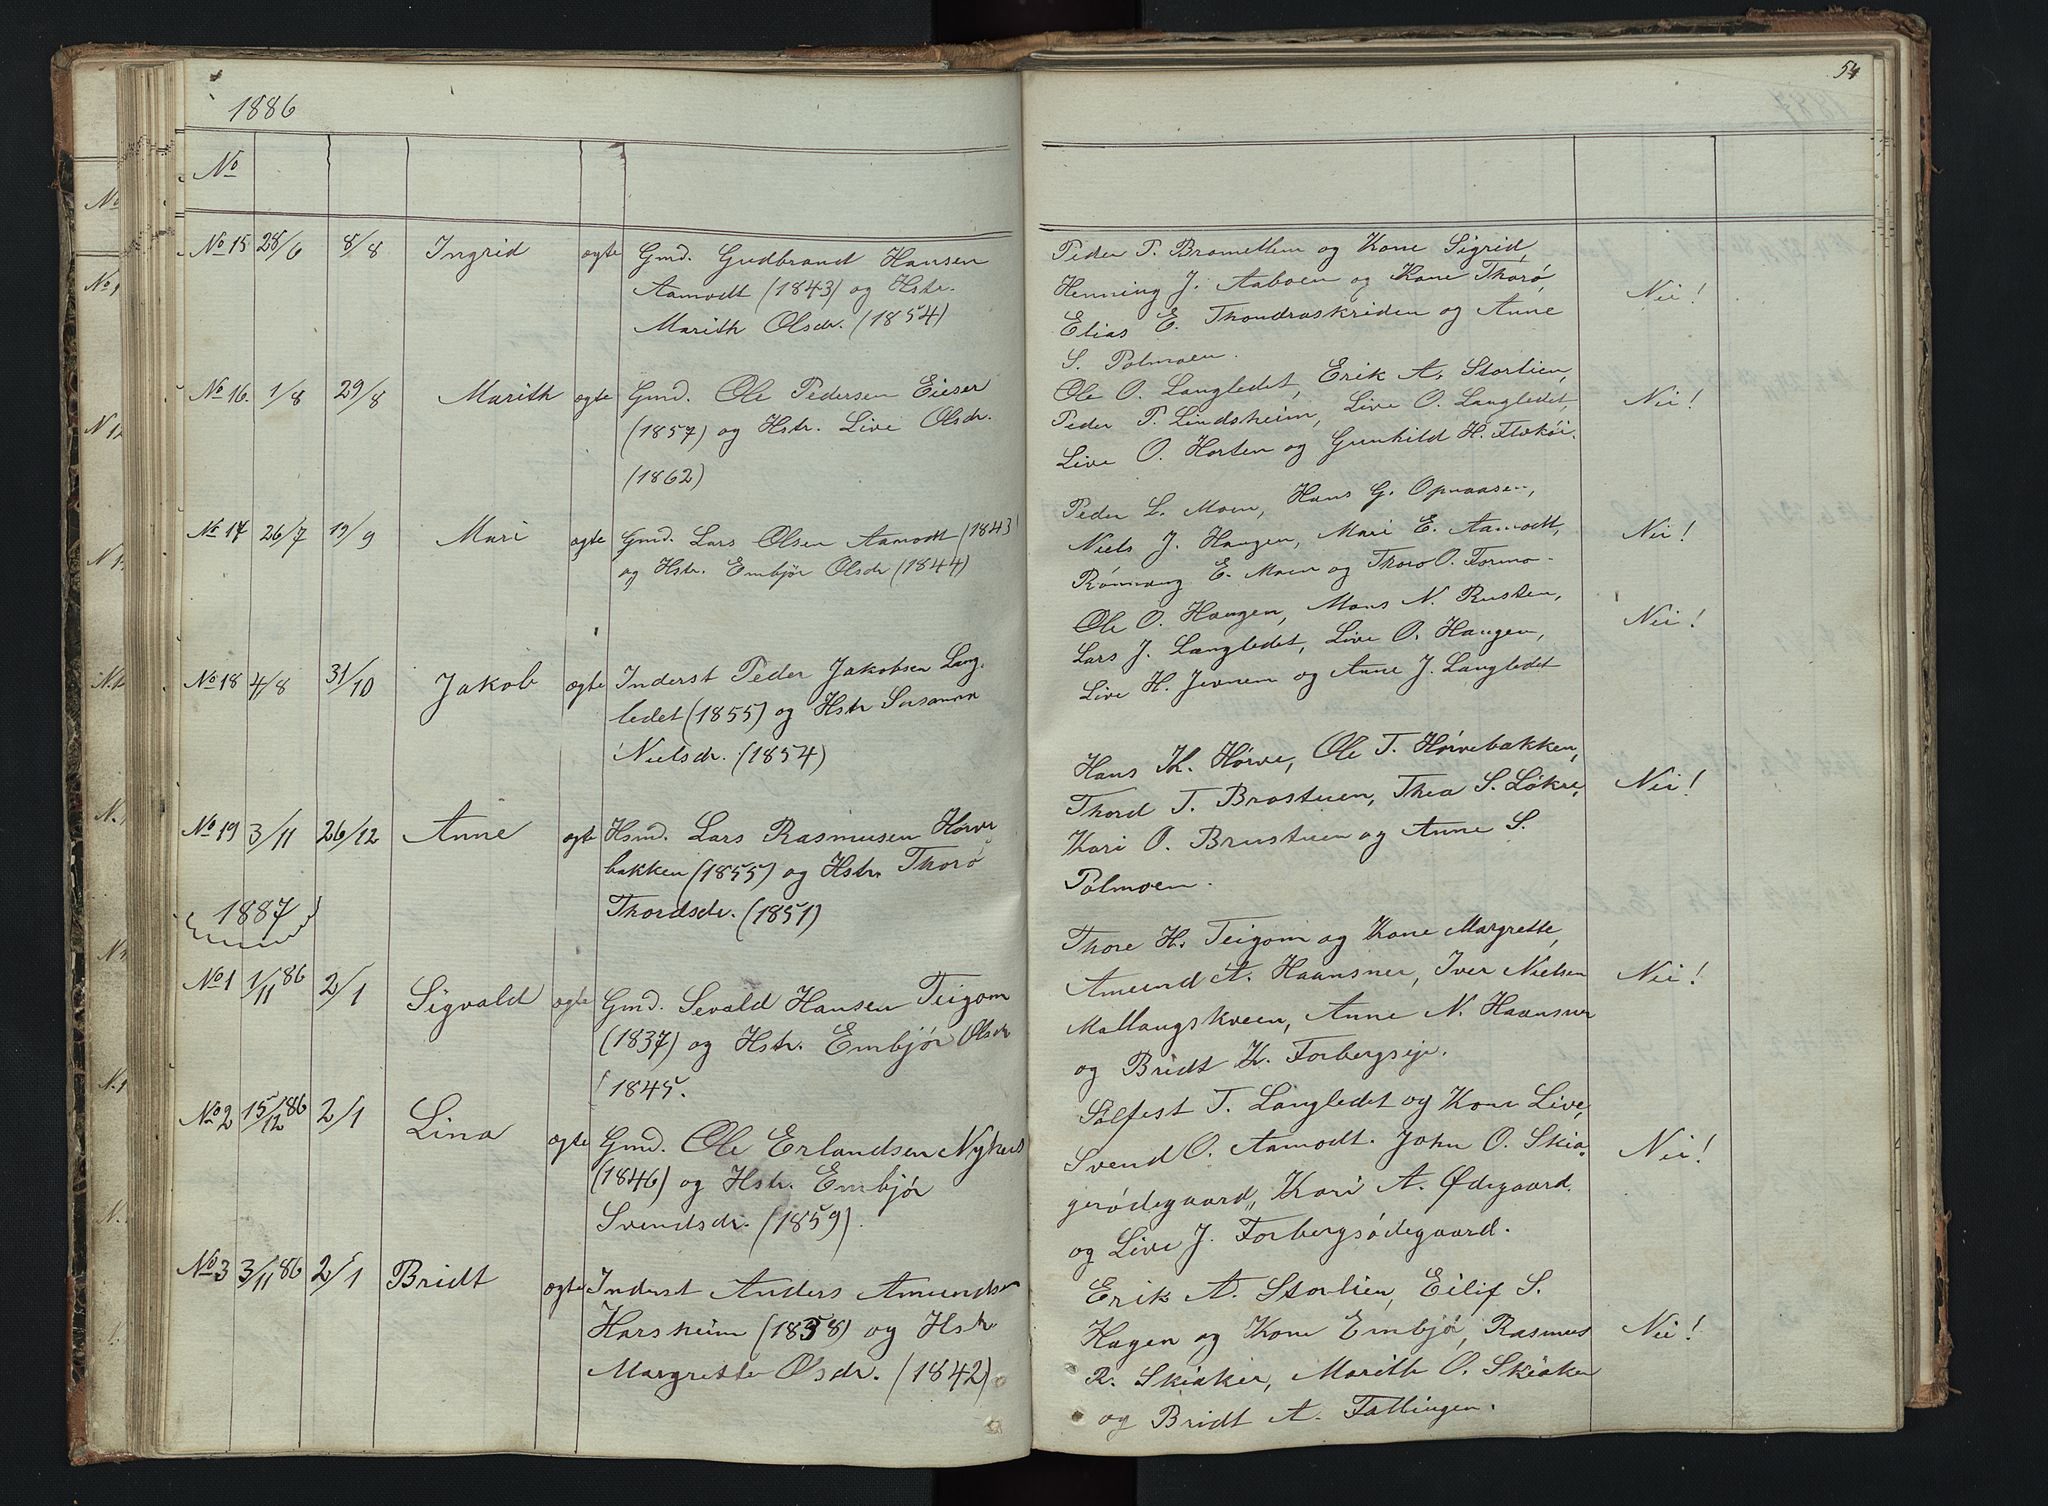 1886
54
No
No 15 28/6 8/8 Ingrid ægte Gmd. Gudbrand Hansen
Aamodt (1843) og Hstr.
Marith Olsdr. (1854)
Peder P. Bromellem og Kone Sigrid,
Henning J. Aaboen og Kone Thorø,
Elias E. Thondraskriden og Anne
S. Polmoen.
Nei!
No 16. 1/8 29/8 Marith ægte Gmd. Ole Pedersen
(1857) og Hstr. Live Olsdr.
(1862)
Ole O. Langledet, Erik A. Storlien,
Peder P. Lindsheim, Live O. Langledet,
Live O. Horten og Gunhild H. Flækøi.
Nei!
No 17 26/7 19/9 Mari ægte Gmd. Lars Olsen Aamodt (1843)
og Hstr. Embjør Olsdr (1844)
Peder L. Moen, Hans G. Opnaasen,
Niels J. Haugen, Mari E. Aamodt,
Rønnaug E. Moen og Thoro O. Formo-
Nei!
No 18 4/8 31/10 Jakob ægte Inderst Peder Jakobsen Lang-
ledet (1855) og Hstr Susanna
Nielsdr. (1854)
Ole O. Haugen, Mons N. Rusten,
Lars J. Langledet, Live O. Haugen,
Live H. Jevnem og Anne J. Langledet
Nei!
No 19 3/11 26/12 Anne ægte Hsmd. Lars Rasmusen Hørve
bakken (1855) og Hstr. Thorø
Thordsdr. (1851)
Hans Th. Hørve, Ole T. Hørvebakken,
Thord T. Brostuen, Thea S. Løkre,
Kari O. Brustuen og Anne S.
Polmoen.
Nei!
1887
No 1 1/11 86 2/1 Sigvald ægte Gmd. Sevald Hansen Teigom
(1837) og Hstr. Embjør Olsdr
(1845.
Thore H. Teigom og Kone Margrette,
Amund A. Haansner, Iver Nielsen
Mallangskveen, Anne N. Haansner
og Bridt K. Forbergseje.
Nei!
No 2 15/12 86 2/1 Lina ægte Gmd. Ole Erlandsen Nyhus
(1846) og Hstr. Embjør
Svendsdr. (1859).
Solfest T. Langledet og Kone Live,
Svend O. Aamodt. John O. Skia-
gerødegaard, Kari A. Ødegaard.
og Live J. Forbergsødegaard.
Nei!
No 3 3/11 86 2/1 Bridt ægte Inderst Anders Amundsen
Harsheim (1858) og Hstr
Margrette Olsdr. (1842)
Erik A. Storlien, Eilif S.
Hagen og Kone Embjø, Rasmus
R. Skiaker, Marith O. Skiaker
og Bridt A. Fallingen.
Nei!